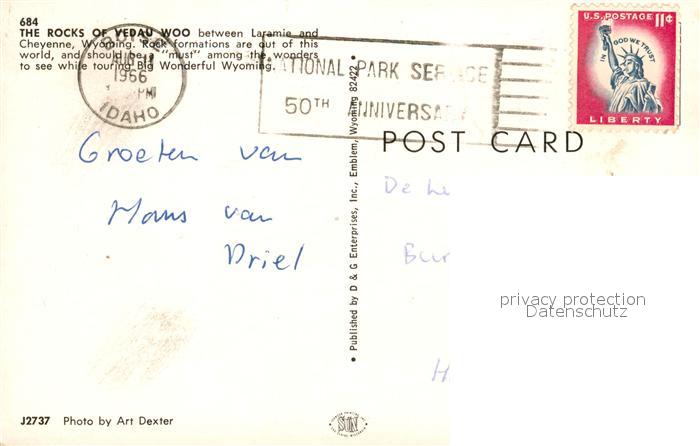 684
THE ROCKS OF VEDAU WOO between Laramie and
Cheyenne, Wyoming. Rock formations are out of this
world, and should be a "must" among the wonders
to see while touring Big Wonderful Wyoming.
1966
PM
IDAHO
NATIONAL PARK SERVICE
50TH ANNIVERSARY
U.S. POSTAGE 11¢
IN GOD WE TRUST
LIBERTY
POST CARD
Groeten van
Hans van
Driel
De
• Published by D & G Enterprises, Inc., Emblem, Wyoming 82422 •
privacy protection
Datenschutz
J2737 Photo by Art Dexter
SUN